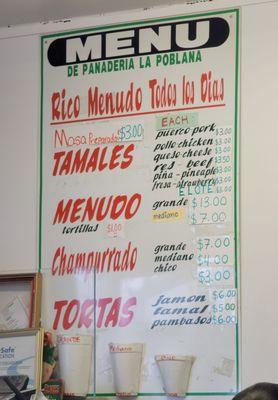 MENU
DE PANADERIA LA POBLANA
Rico Menudo Todos los Dias
EACH
Masa Preparada $3.00
TAMALES
puerco pork $3.00
pollo chicken $3.00
queso cheese $3.00
res - beef $3.50
piña - pineapple $3.00
fresa - strawberry $3.00
ELOTE $3.00
MENUDO
tortillas $1.00
grande $13.00
mediano $7.00
Champurrado
grande $7.00
mediano $4.00
chico $3.00
TORTAS
Jamon $6.00
tamal $5.00
pambasos $6.00
GRANDE
MEDIANO
CHICO